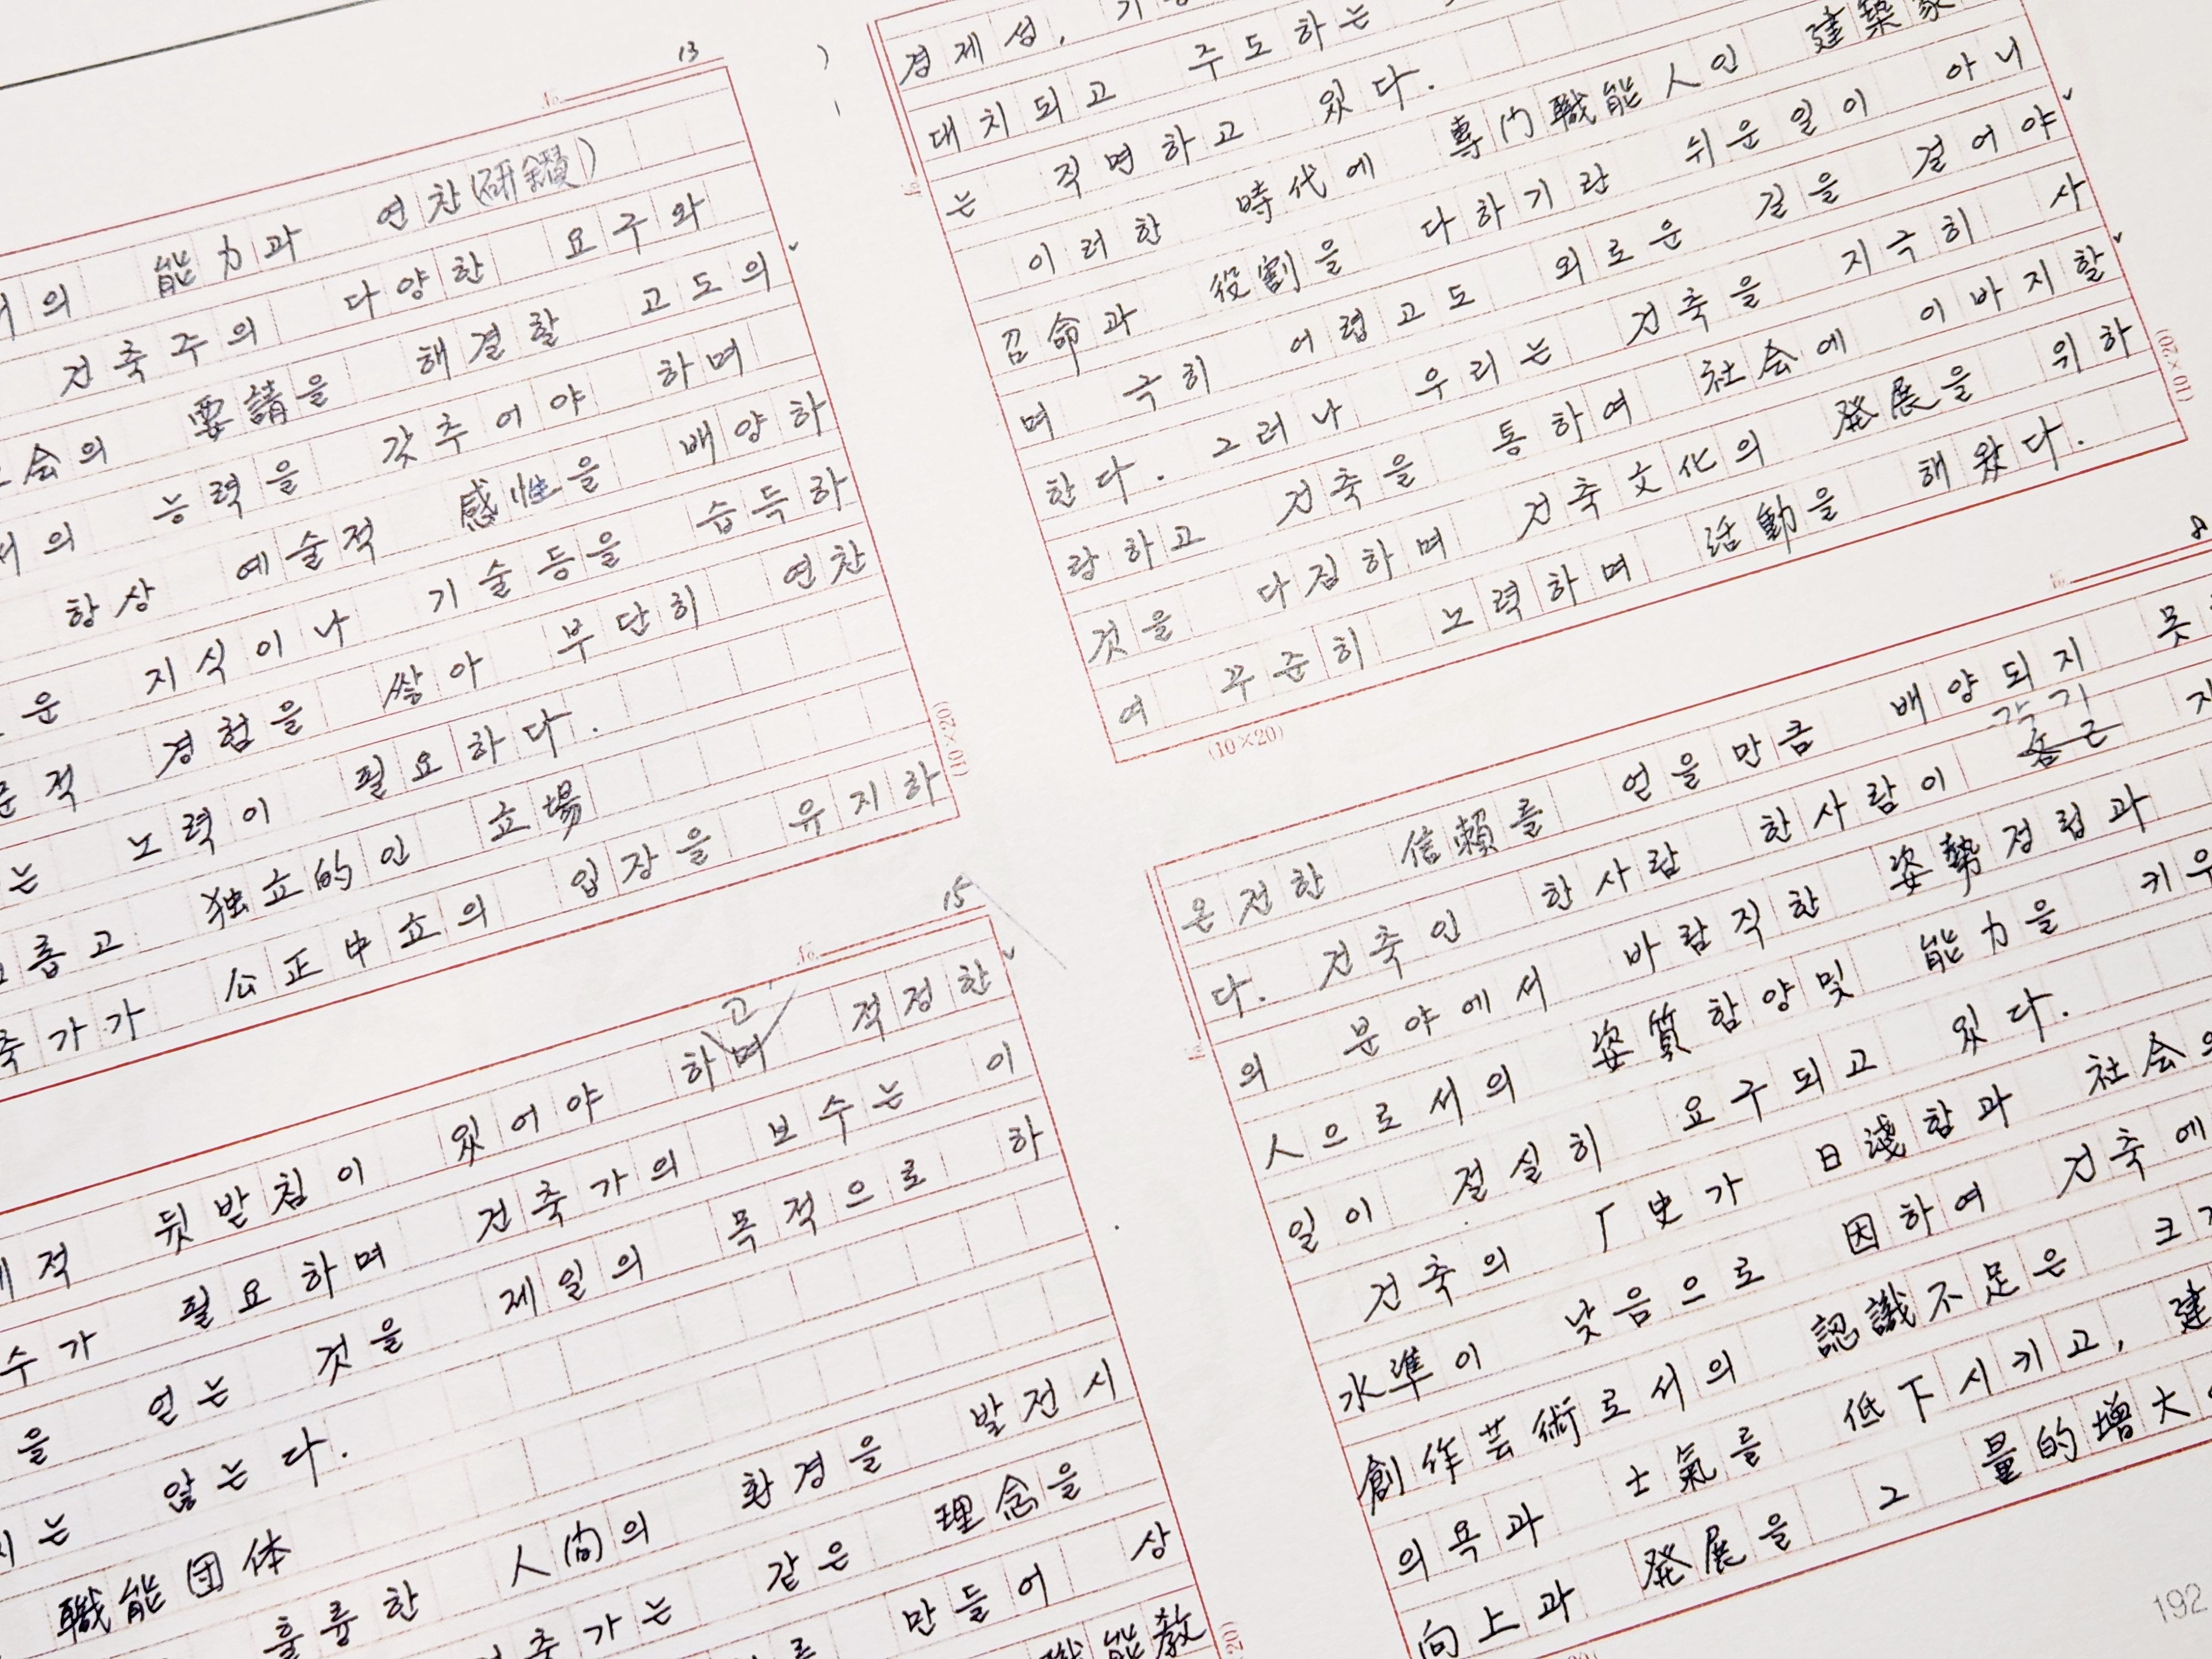 13
의 能力과 연찬(研鑽)
건축주의 다양한 요구와
会의 要請을 해결할 고도의
서의 능력을 갖추어야 하며
항상 예술적 感性을 배양하
운 지식이나 기술등을 습득하
적 경험을 쌓아 부단히 연찬
는 노력이 필요하다.
롭고 独立的인 立場
축가가 公正中立의 입장을 유지하
(10×20)
경제성,
대치되고 주도하는
는 직면하고 있다.
이러한 時代에 専门職能人인 建築家
召命과 役割을 다하기란 쉬운일이 아니
며 극히 어렵고도 외로운 길을 걸어야
한다. 그러나 우리는 건축을 지극히 사
랑하고 건축을 통하여 社会에 이바지할
것을 다짐하며 건축文化의 発展을 위하
여 꾸준히 노력하며 活動을 해왔다.
(10×20)
(10×20)
15
적 뒷받침이 있어야 하며 고 적정한
수가 필요하며 건축가의 보수는 이
을 얻는 것을 제일의 목적으로 하
지는 않는다.
職能団体
훌륭한 人间의 환경을 발전시
축가는 같은 理念을
만들어 상
職能敎
8
온전한 信賴를 얻을만큼 배양되지 못
다. 건축인 한사람 한사람이 각기
의 분야에서 바람직한 姿勢정립과
人으로서의 姿質함양및 能力을 키우
일이 절실히 요구되고 있다.
건축의 厂史가 日淺함과 社会의
水準이 낮음으로 因하여 건축에
創作芸術로서의 認識不足은 크
의욕과 士氣를 低下시키고, 建
向上과 発展을 그 量的增大
192